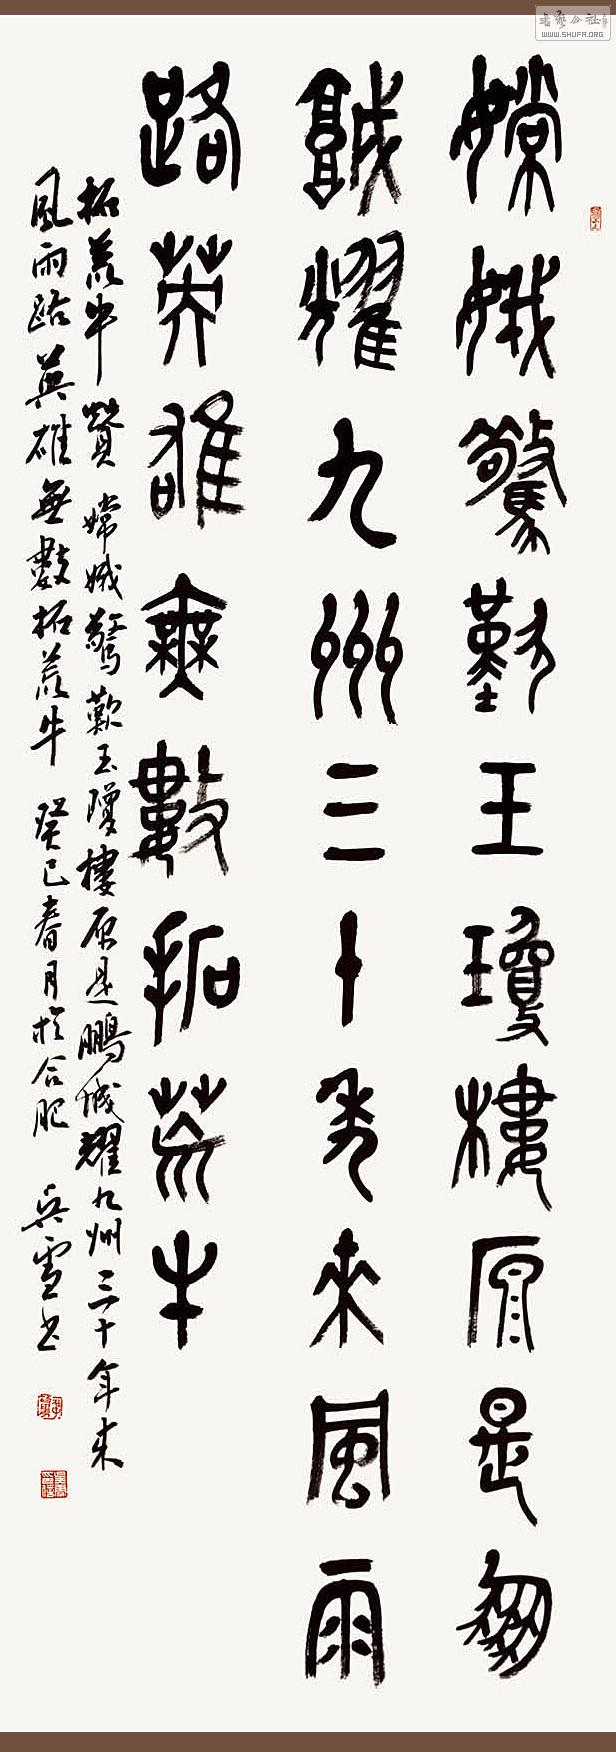 嫦娥驚歎玉瓊樓原是鵬
城耀九州三十年來風雨
路英雄無數拓荒牛
拓荒牛贊 嫦娥驚歎玉瓊樓原是鵬城耀九州三十年來
風雨路英雄無數拓荒牛 癸巳春月於合肥 吳雪書
WWW.SHUFA.ORG